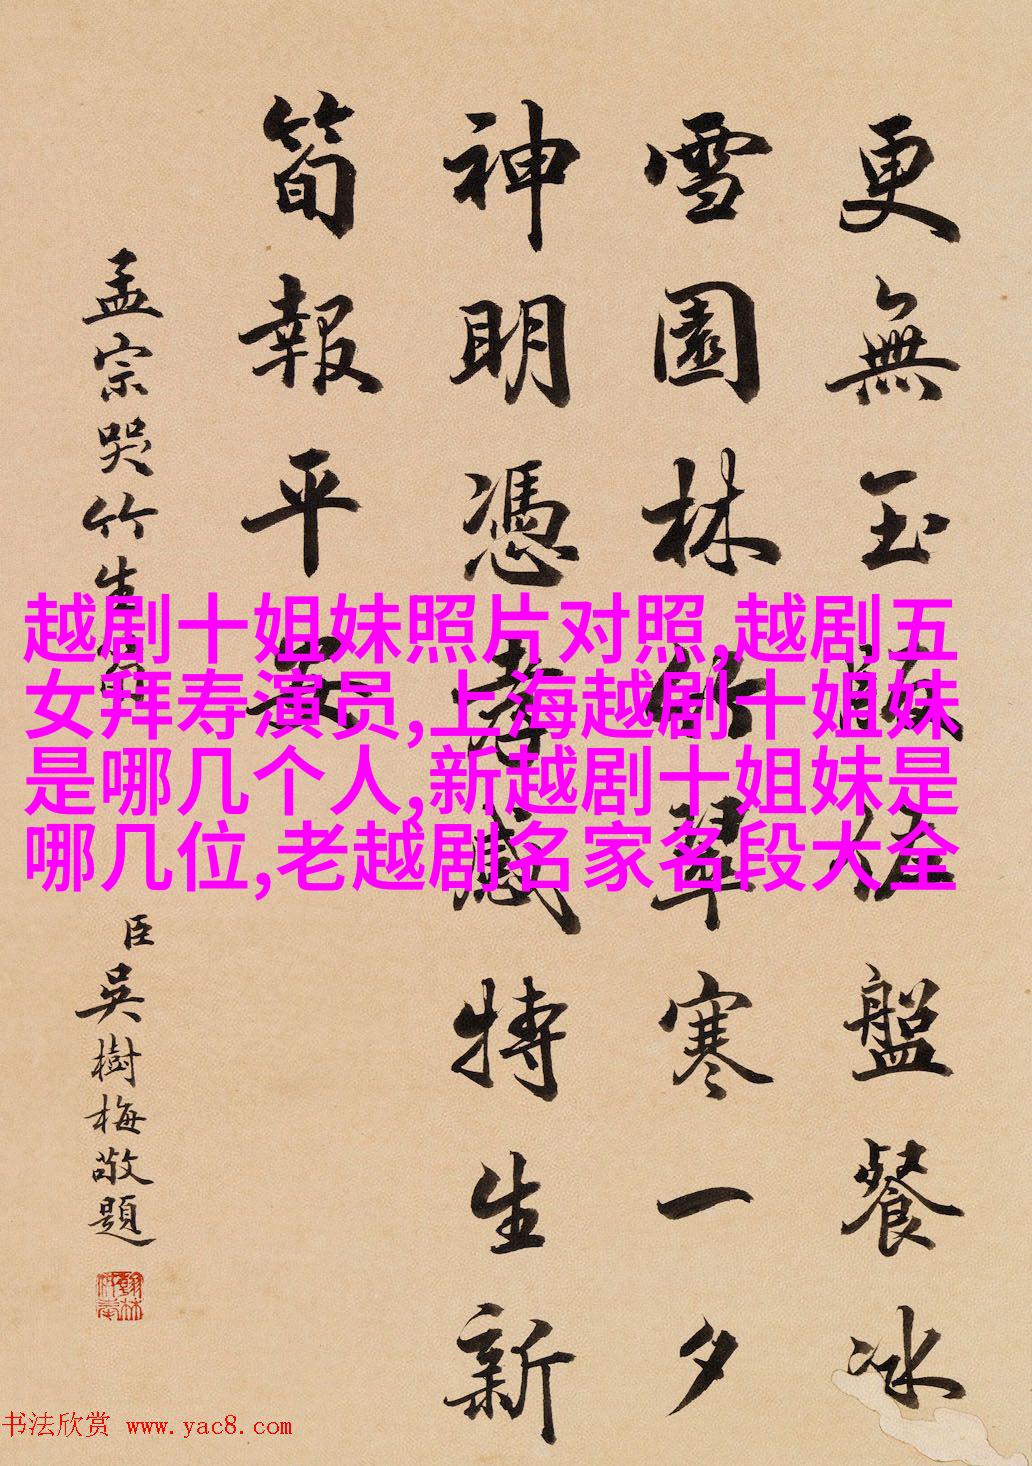 更無玉版佐盤餐冰
雪園林竹翠寒一夕
神明憑孝感特生新
筍報平安
孟宗哭竹生筍
臣吳樹梅敬題
越剧十姐妹照片对照,越剧五
女拜寿演员,上海越剧十姐妹
是哪几个人,新越剧十姐妹是
哪几位,老越剧名家名段大全
书法欣赏 www.yac8.com